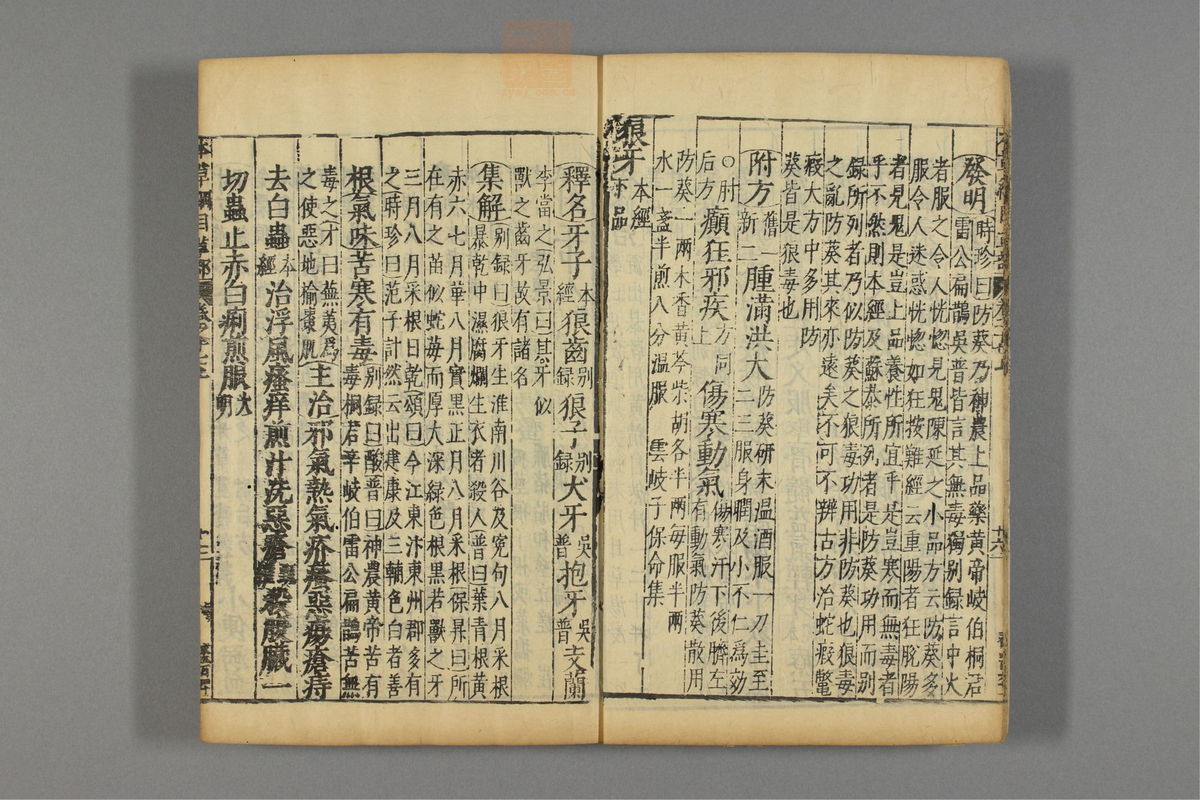 發明時珍曰防葵乃神農上品藥黃帝岐伯桐君
雷公扁鵲吳普皆言其無毒獨別録言中火
者服之令人恍惚見鬼陳延之小品方云防葵多
服令人迷惑恍惚如狂按難經云重陽者狂脫陽
者見鬼是豈上品養性所宜乎是豈寒而無毒者
乎不然則本經及蘇恭所列者是防葵功用而别
録所列者乃似防葵之狼毒功用非防葵也狼毒
之亂防葵其來亦遠矣不可不辨古方治蛇瘕鱉
瘕大方中多用防
葵皆是狼毒也
附方舊一新二腫滿洪大防葵研末温酒服一刀圭至
二三服身瞤及小不仁爲効
○肘後方癲狂邪疾方同上傷寒動氣傷寒汗下後臍左
有動氣防葵散用
防葵一兩木香黃芩柴胡各半兩每服半兩
水一盞半煎八分温服 雲岐子保命集
狼牙本經下品
釋名牙子本經狼齒别録狼子别録犬牙吳普抱牙吳普支蘭
李當之弘景曰其牙似
獸之齒牙故有諸名
集解别録曰狼牙生淮南川谷及寃句八月采根
暴乾中濕腐爛生衣者殺人普曰葉青根黃
赤六七月華八月實黑正月八月采根保昇曰所
在有之苗似蛇莓而厚大深緑色根黑若獸之牙
三月八月采根日乾頌曰今江東汴東州郡多有
之時珍曰范子計然云出建康及三輔色白者善
根氣味苦寒有毒别録曰酸普曰神農黃帝苦有
毒桐君辛岐伯雷公扁鵲苦無
毒之才曰蕪荑爲
之使惡地榆棗肌主治邪氣熱氣疥瘙惡瘍瘡痔
去白蟲本經治浮風瘙痒煎汁洗惡瘡 殺腹臟一
切蟲止赤白痢煎服大明